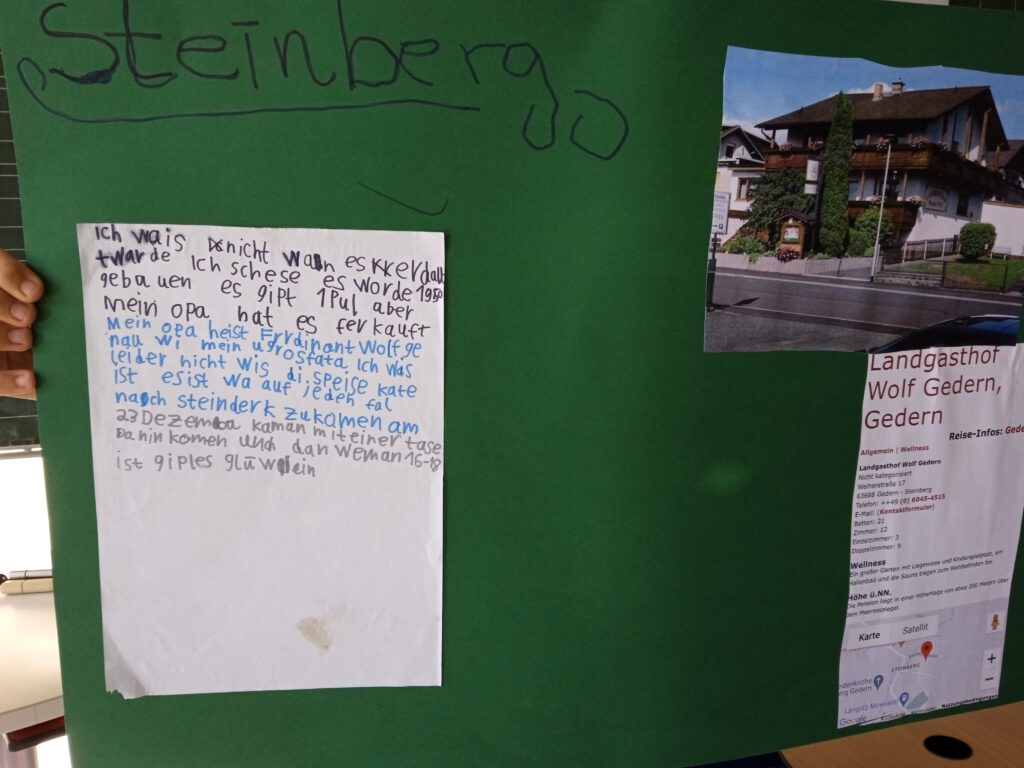 Steinberg
Ich wais nicht wan es
twar de Ich schese es worde 1950
gebauen es gipt 1 Pul aber
mein opa hat es fer kauft
Mein opa heist Ferdinant Wolf ge
nau wi mein ugrosfata Ich wais
leider nicht wis di speise kate
Ist es ist wa auf jeden fal
nach steinderk zu kamen am
23 Dezemba kaman mit einer tase
Dahin komen und dan weman 16-18
ist gip les glüwein
Landgasthof
Wolf Gedern,
Gedern
Reise-Infos: Gede
Allgemein | Wellness
Landgasthof Wolf Gedern
Nicht kategorisiert
Weiherstraße 17
63688 Gedern - Steinberg
Telefon: ++49 (0) 6045-4515
E-Mail: (Kontaktformular)
Betten: 21
Zimmer: 12
Einzelzimmer: 3
Doppelzimmer: 9
Wellness
Ein großer Garten mit Liegewiese und Kinderspielplatz, ein
Hallenbad und die Sauna tragen zum Wohlbefinden bei.
Höhe ü.NN.
Die Pension liegt in einer Höhenlage von etwa 350 Metern über
dem Meeresspiegel.
Karte Satellit
STEINBERG
denkirche
erg Gedern
Langlitz Mineralöl
Google
Nutzungsbedingungen